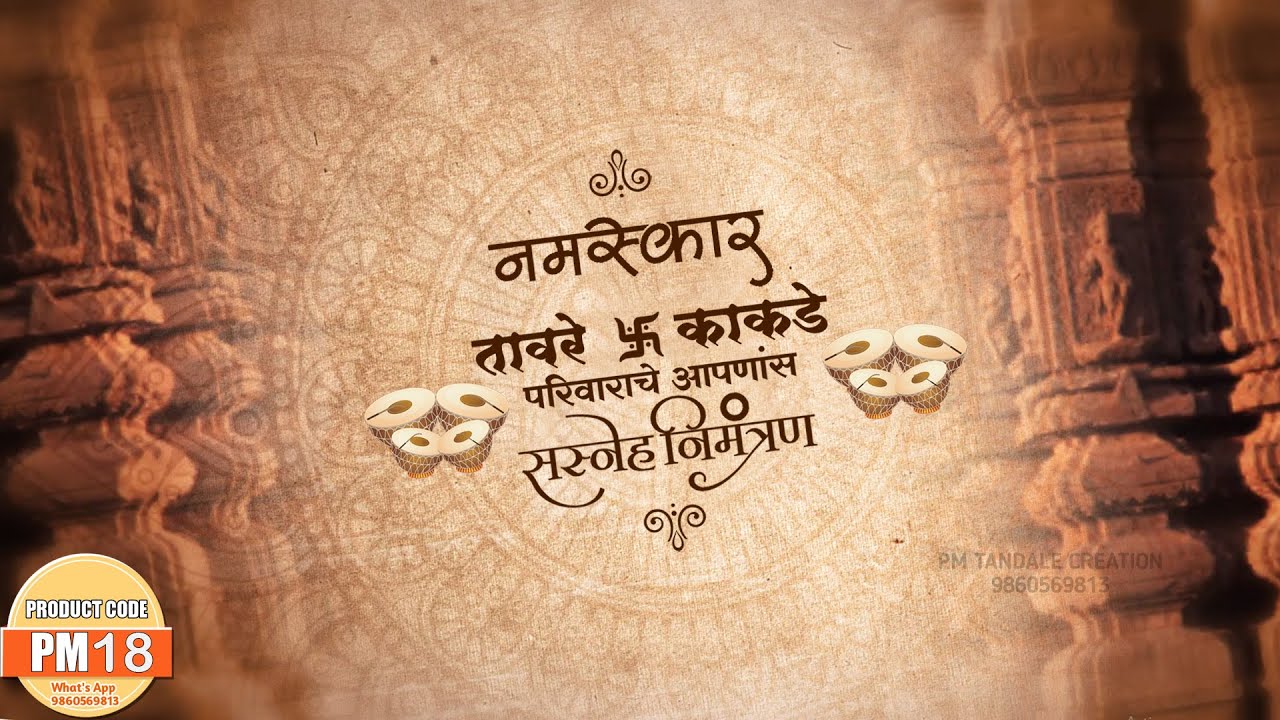 नमस्कार
तावरे 卐 काकडे
परिवाराचे आपणांस
सस्नेह निमंत्रण
PM TANDALE CREATION
9860569813
PRODUCT CODE
PM18
What's App
9860569813